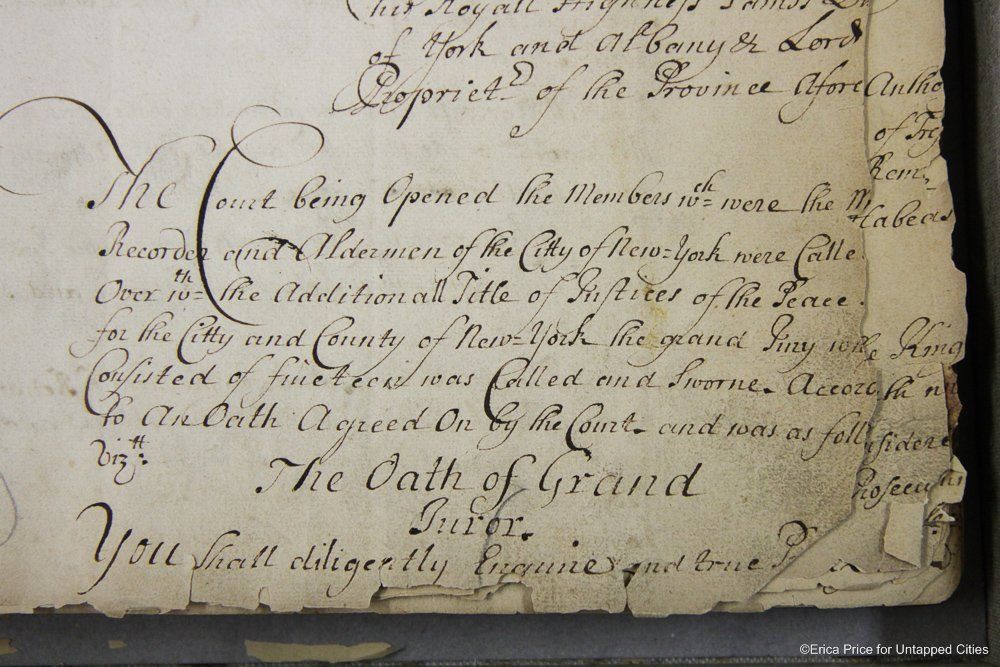 his Royall Highness James Du
of York and Albany & Lord
Propriet.rs of the Province Afore
The Court being Opened the Members wch were the M
Recorder and Aldermen of the Citty of New=York were Calle
Over wth the Additionall Title of Justices of the Peace.
for the Citty and County of New=York the grand Jury wch
Consisted of fiveteen was Called and Sworne. Accord
to An Oath Agreed On by the Court. and was as foll
Viztt:
The Oath of Grand
Juror.
You shall diligently Enquire and true P
Antho
of
Rem
labeas
King
th
sidere
Prosecu
©Erica Price for Untapped Cities